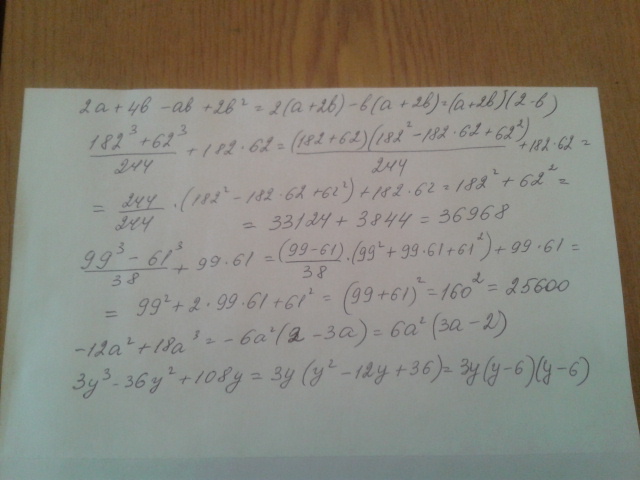 2a + 4b - ab + 2b² = 2(a+2b) - b(a+2b) = (a+2b)(2-b)
(182³ + 62³)/244 + 182·62 = (182+62)(182² - 182·62 + 62²)/244 + 182·62 =
= 244/244 · (182² - 182·62 + 62²) + 182·62 = 182² + 62² =
= 33124 + 3844 = 36968
(99³ - 61³)/38 + 99·61 = (99-61)/38 · (99² + 99·61 + 61²) + 99·61 =
= 99² + 2·99·61 + 61² = (99+61)² = 160² = 25600
-12a² + 18a³ = -6a²(2 - 3a) = 6a²(3a - 2)
3y³ - 36y² + 108y = 3y(y² - 12y + 36) = 3y(y-6)(y-6)